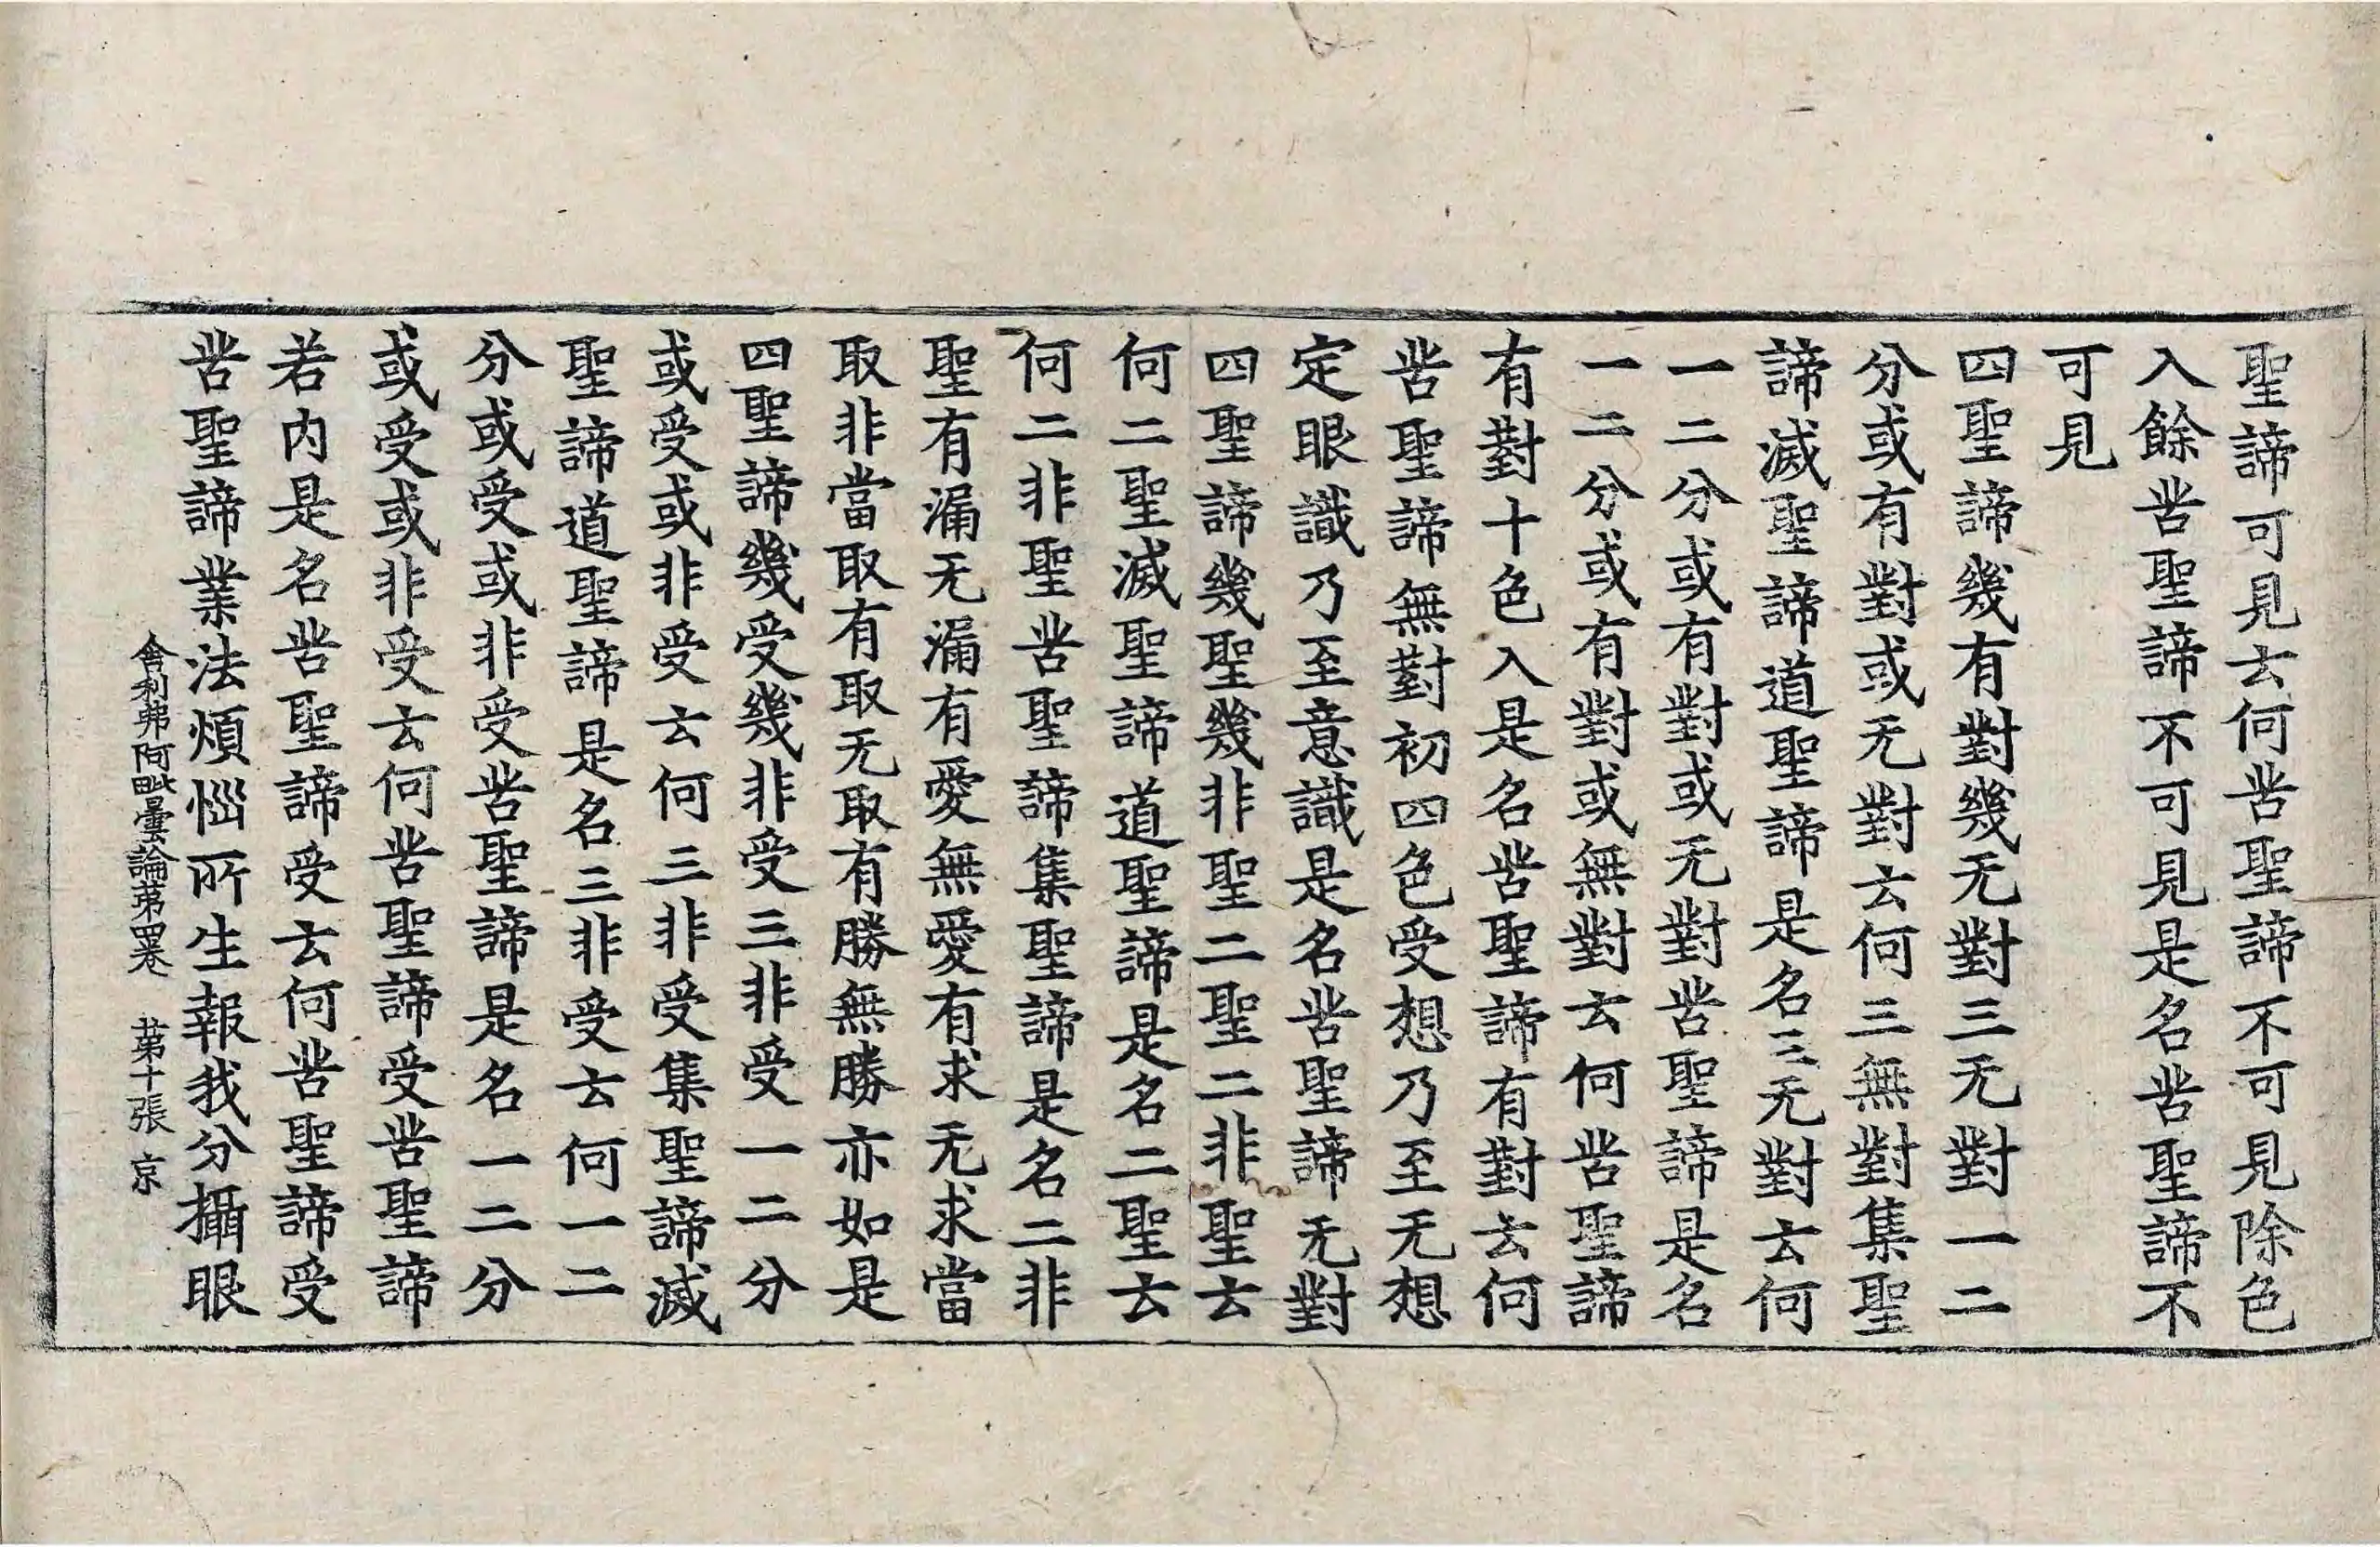 聖諦可見云何苦聖諦不可見除色
入餘苦聖諦不可見是名苦聖諦不
可見
四聖諦幾有對幾无對三无對一二
分或有對或无對云何三無對集聖
諦滅聖諦道聖諦是名三无對云何
一二分或有對或无對苦聖諦是名
一二分或有對或無對云何苦聖諦
有對十色入是名苦聖諦有對云何
苦聖諦無對初四色受想乃至无想
定眼識乃至意識是名苦聖諦无對
四聖諦幾聖幾非聖二聖二非聖云
何二聖滅聖諦道聖諦是名二聖云
何二非聖苦聖諦集聖諦是名二非
聖有漏无漏有愛無愛有求无求當
取非當取有取无取有勝無勝亦如是
四聖諦幾受幾非受三非受一二分
或受或非受云何三非受集聖諦滅
聖諦道聖諦是名三非受云何一二
分或受或非受苦聖諦是名一二分
或受或非受云何苦聖諦受苦聖諦
若内是名苦聖諦受云何苦聖諦受
苦聖諦業法煩惱所生報我分攝眼
舍利弗阿毗曇論苐四卷　苐十張　京